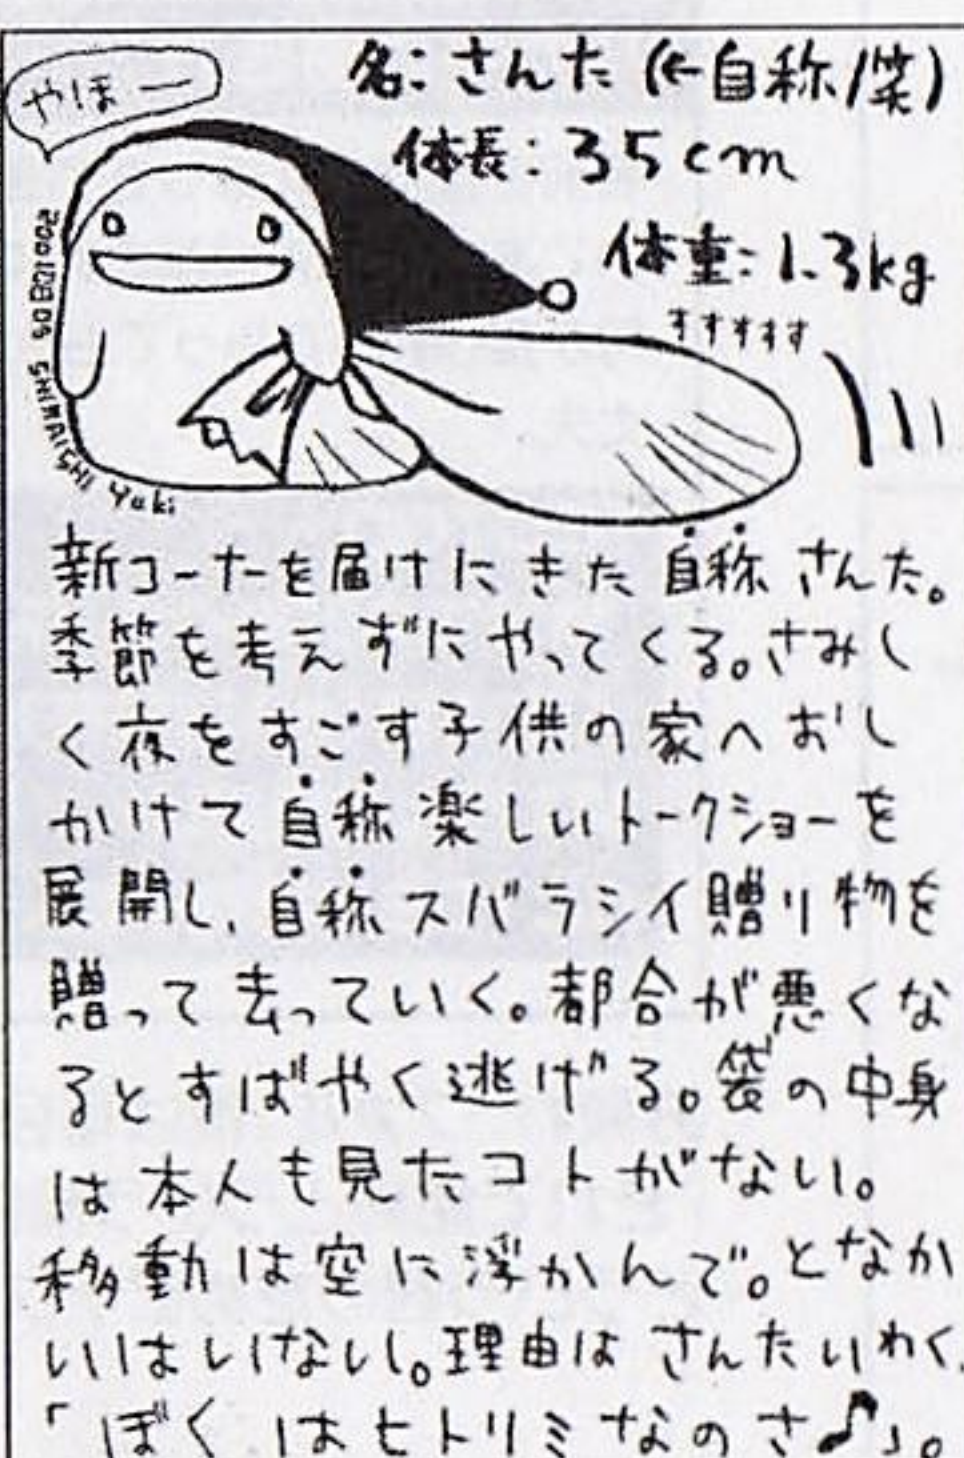 やほー
名:さんた(←自称/笑)
体長:35cm
体重:1.3kg
すすすすす
SHIMAISHI Yuki
新コーナーを届けにきた自称さんた。
季節を考えずにやってくる。さみし
く夜をすごす子供の家へおし
かけて自称楽しいトークショーを
展開し、自称スバラシイ贈り物を
贈って去っていく。都合が悪くな
るとすばやく逃げる。袋の中身
は本人も見たコトがない。
移動は空に浮かんで。となか
いはいない。理由はさんたいわく、
「ぼくはヒトリミなのさ♪」。